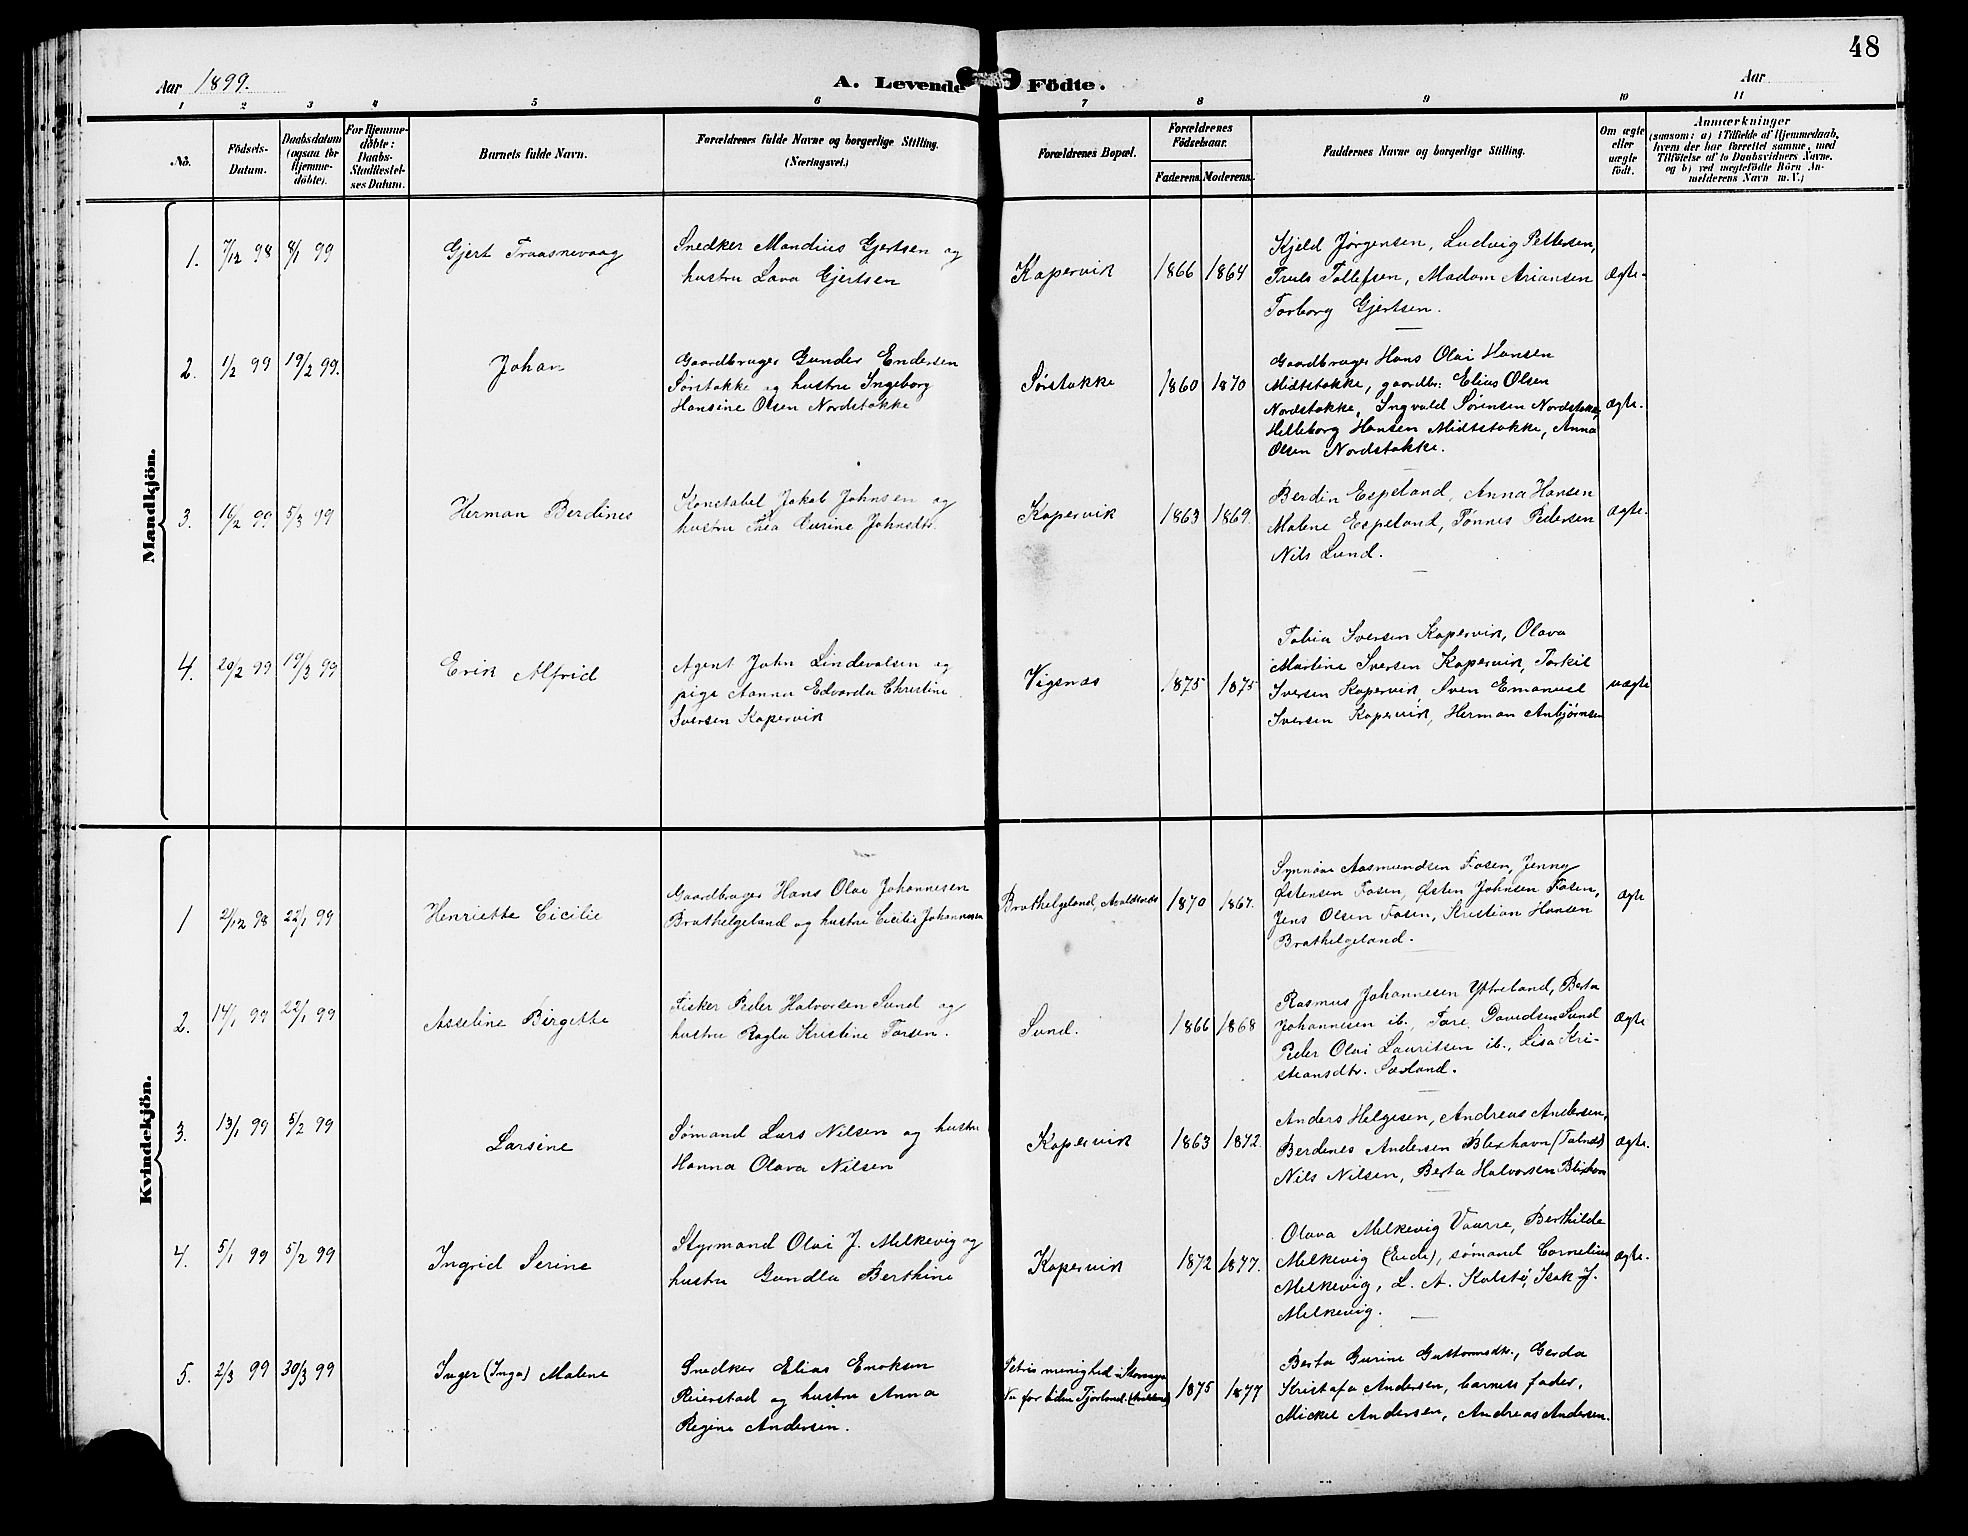 48
Aar 1899.
A. Levende Födte.
Aar
1 2 3 4 5 6 7 8 9 10 11
No.
Födsels-
Datum.
Daabsdatum
(ogsaa for
Hjemme-
döbte).
For Hjemme-
döbte:
Daabs-
Stadfæstel-
ses Datum.
Barnets fulde Navn.
Forældrenes fulde Navne og borgerlige Stilling.
(Næringsvei.)
Forældrenes Bopæl.
Forældrenes
Födselsaar.
Faderens. Moderens.
Faddernes Navne og borgerlige Stilling.
Om ægte
eller
uægte
födt.
Anmærkninger
(saasom: a) i Tilfælde af Hjemmedaab,
hvem der har forrettet samme, med
Tilföielse af to Daabsvidners Navne.
og b) ved uægtefödte Börn An-
melderens Navn m. V.)
Mandkjön.
1. 7/12 98 8/1 99
Gjert Traasnevaag
Snedker Mandius Gjertsen og
hustru Lava Gjertsen
Kopervik 1866 1864
Kjeld Jørgensen, Ludvig Pettersen,
Truls Tollefsen, Madam Ariansen
Torborg Gjertsen.
Ægte-
2. 1/2 99 19/2 99.
Johan
Gaardbruger Gunder Endersen
Sørstokke og hustru Ingeborg
Hansine Olsen Nordstokke
Sørstokke 1860 1870
Gaardbruger Hans Olai Hansen
Midtstokke, gaardbr: Elias Olsen
Nordstokke, Ingvald Sørensen Nordstokke,
Helleborg Hansen Midtstokke, Anna
Olsen Nordstokke.
Ægte.
3. 16/2 99 5/3 99
Herman Berdines
Konstabel Jakob Johnsen og
hustru Thea Johnsdtr.
Kopervik 1863 1869.
Berdin Espeland, Anna Hansen
Malene Espeland, Tønnes Pedersen
Nils Lund.
Ægte.
4. 20/2 99 19/3 99
Erik Alfrid
Agent John Lindevalsen og
pige Aanna Edvarda Christine
Iversen Kopervik
Vigsnæs 1875 1875
Tobia Iversen Kopervik, Olava
Martine Iversen Kopervik, Torkil
Iversen Kopervik, Sven Emanuel
Iversen Kopervik, Herman Anbjørnsen
uægte
Kvindekjön.
1 2/12 98 22/1 99
Henriette Cicilie
Gaardbruger Hans Olai Johannesen
Bratthelgeland og hustru Cecilie Johannesen
Brathelgeland, Avaldsnes 1870 1867.
Synnøve Aasmundsen Fosen, Jenny
Østensen Fosen, Østen Johnsen Fosen,
Jens Olsen Fosen, Kristian Hansen
Brathelgeland.
Ægte
2. 14/1 99 22/1 99
Asseline Birgitte
Fisker Peder Halvorsen Sund og
hustru Ragla Kristine Torsen.
Sund. 1866 1868
Rasmus Johannesen Ytreland, Berta
Johannesen ib., Tore Davidsen Sund
Peder Olai Lauritsen ib., Lisa Kri-
stiansdtr. Søvland.
Ægte
3. 13/1 99 5/2 99
Larsine
Sømand Lars Nilsen og hustru
Hanna Olava Nilsen
Kopervik 1863 1872.
Anders Helgesen, Andreas Andersen,
Berdenes Andersen Blixhavn (Falnæs)
Nils Nilsen, Berta Halvorsen Blixhavn
Ægte.
4. 5/1 99 5/2 99
Ingrid Serine
Styrmand Olai J. Melkevig og
hustru Gundla Berthine
Kopervik 1872 1877.
Olava Melkevig Vaarre, Berthilde
Melkevig (Eide), sømand Cornelius
Melkevig, L. A. Kolstø, Isak J.
Melkevig.
Ægte.
5. 2/3 99 30/3 99
Inger (Inga) Malene
Snedker Elias Enoksen
Reierstad og hustru Anna
Regine Andersen.
Petri menighed i Stavanger
Nu for tiden 1875 1877
Berta Gurine Guttormsdtr., Gerda
Kristofa Andersen, barnets fader,
Mickel Andersen, Andreas Andersen.